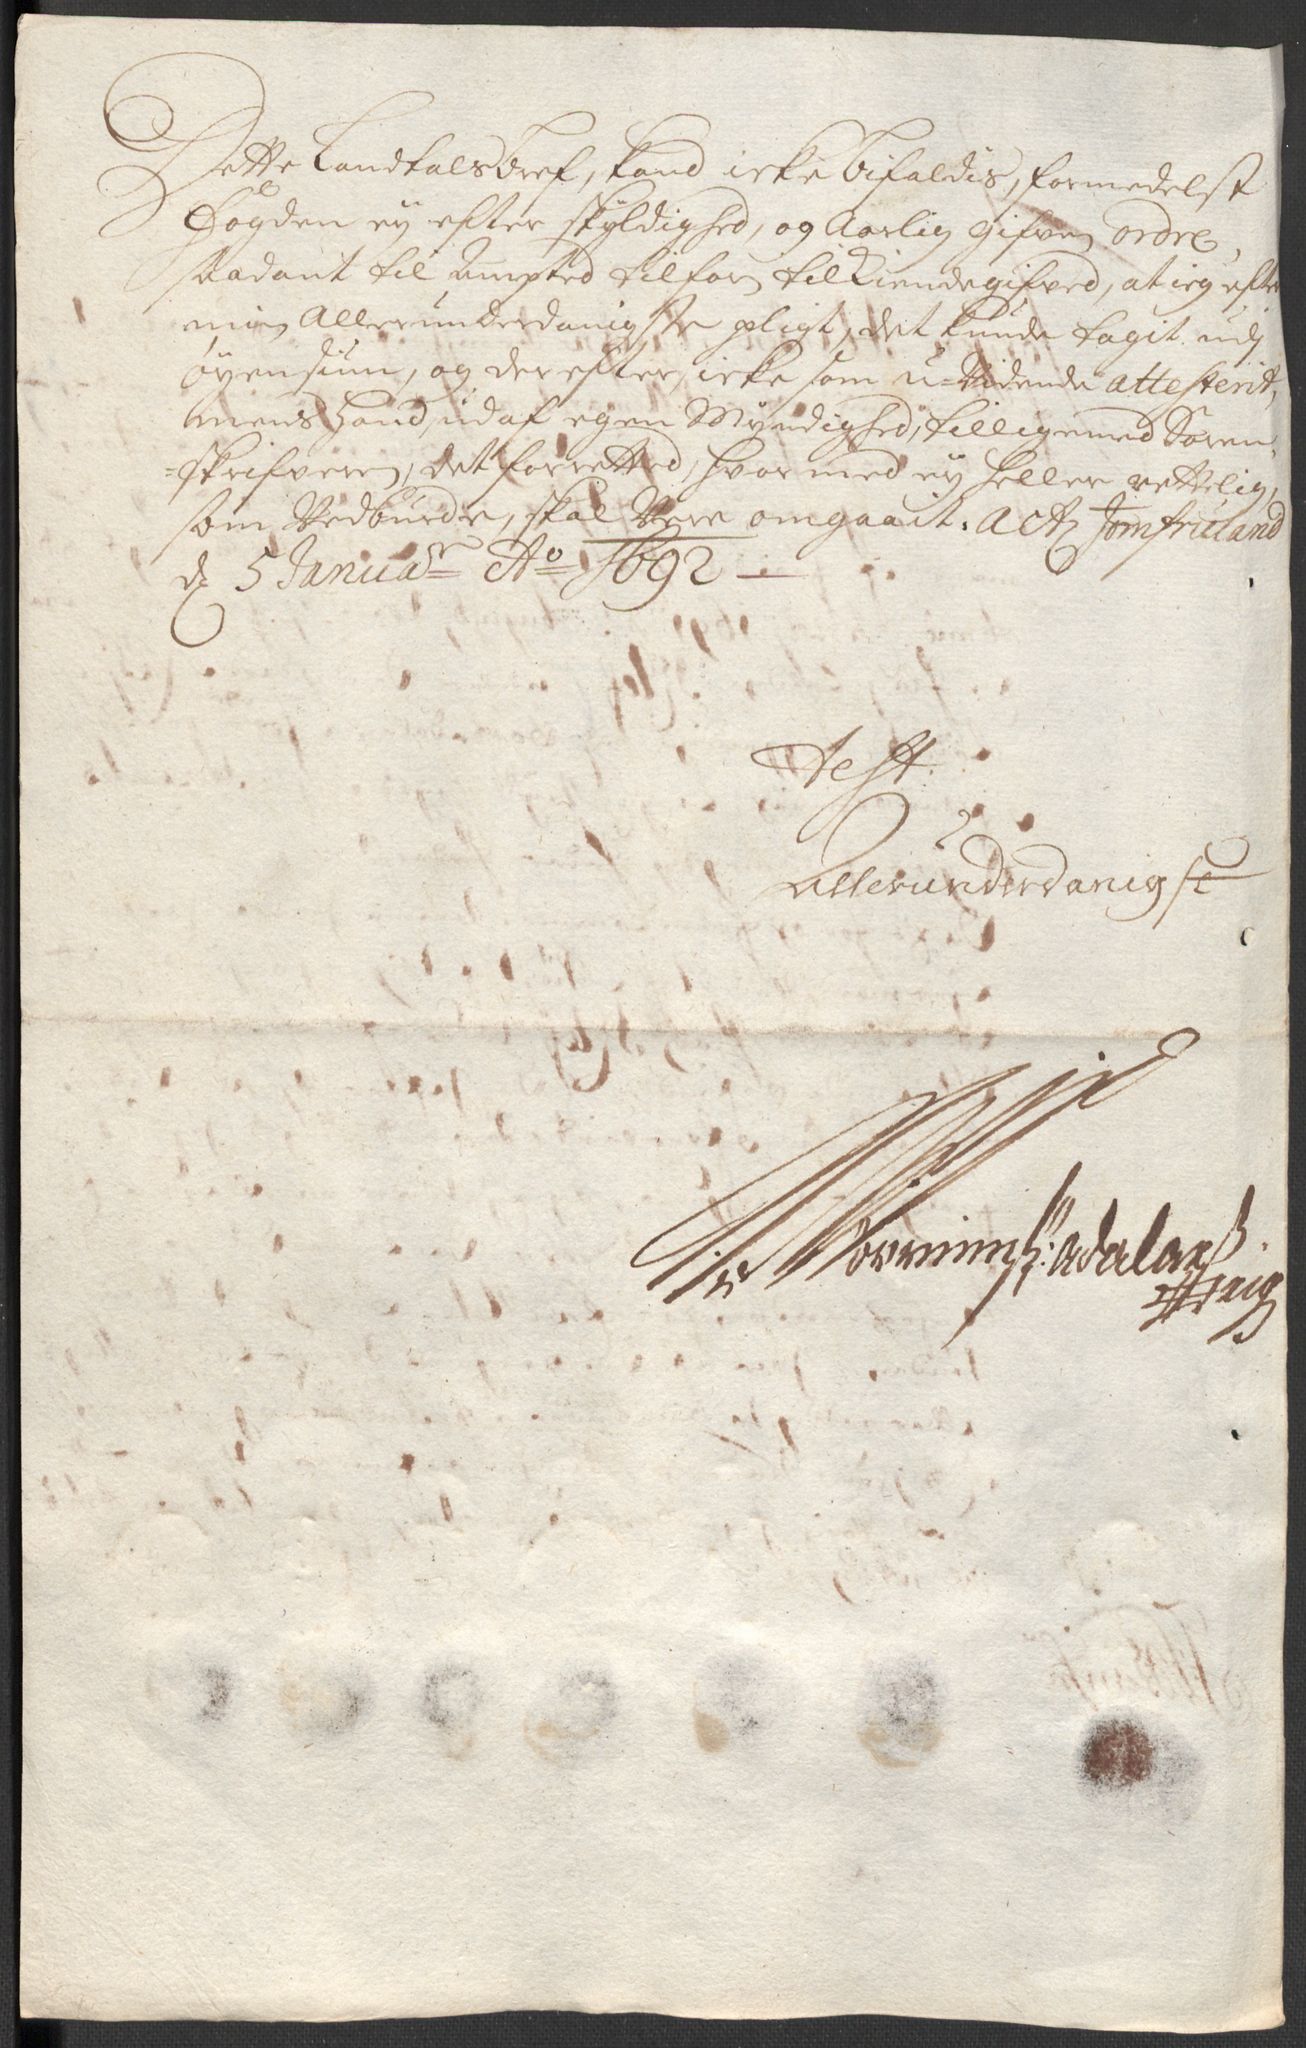 Dette Landfalsbref, kand icke bifaldis, formedelst
Fogden ey efter skyldighed, og Aarlig gifven ordre,
saadant til Ampted tilforn tilkiendegifved, at ieg efter
min Allerunderdanigste pligt, det kunde tagit udj
øyensiun, og derefter, icke som u-vidende attesterit,
mens hand, udaf egen Myndighed, tilligemed Soren-
=skrifveren, det forretted, hvormed ey heller rettelig,
som Vedburde, skal Vere omgaait. Act Jomfruland
d 5 Januar Ao 1692
Test.
Allerunderdanigst
Adelaer